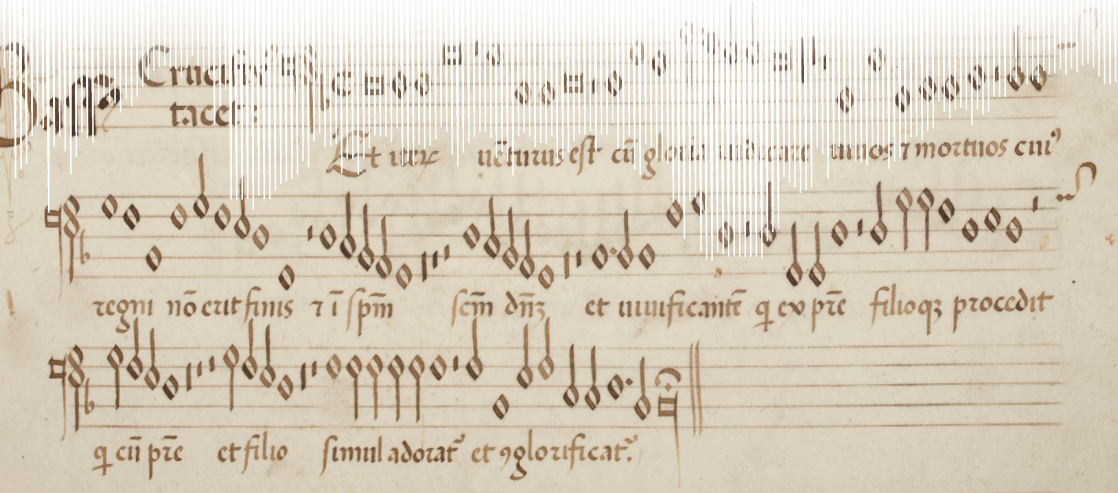 Bassᵒ
Crucifix
tacet:
Et iterū uēturus est cū gloria iudicare uiuos ⁊ mortuos cuiꝰ
regni nō erit finis ⁊ ī spm̄ scm̄ dn̄ꝫ et uiuificantē q̄ ex pr̄e filioqꝫ procedit
q̄ cū pr̄e et filio simul adorat᷑ et ꝯglorificat᷑.